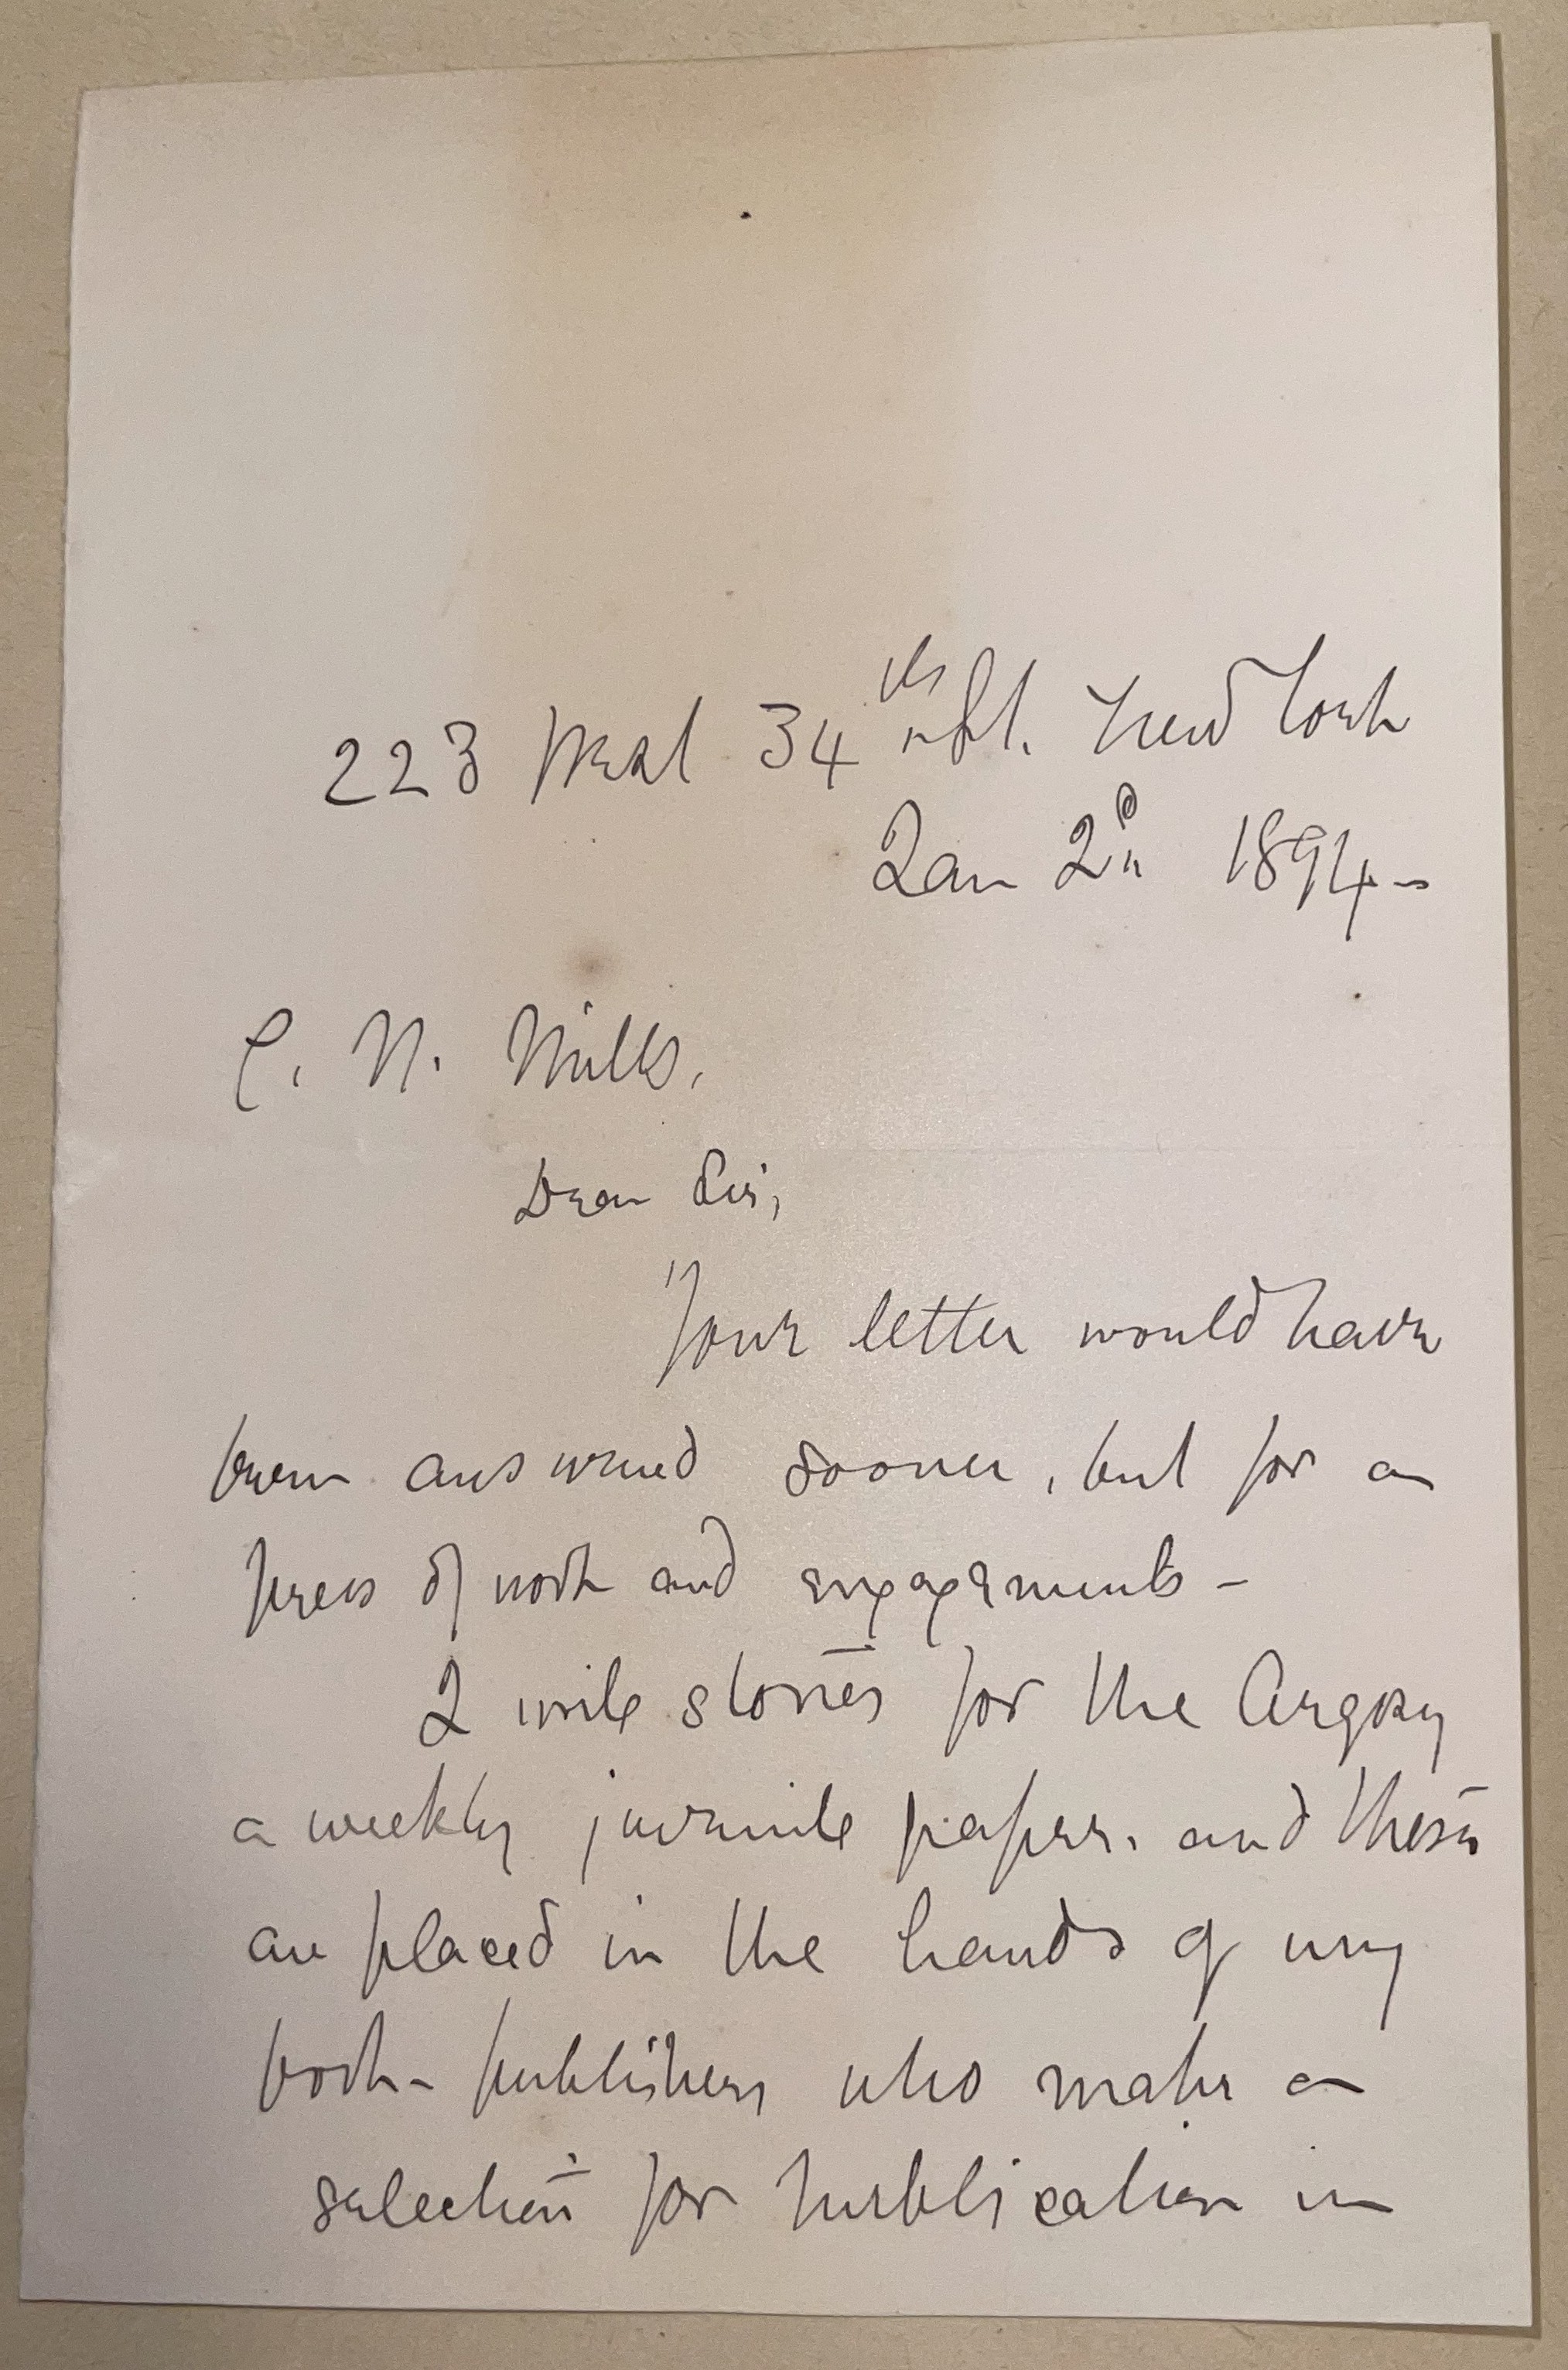 223 West 34th St. New York
Jan 2d 1894 -
C. N. Mills,
Dear Sir,
Your letter would have
been answered sooner, but for a
press of work and engagements -
I write stories for the Argosy
a weekly juvenile paper, and these
are placed in the hands of my
book - publishers who make a
selection for publication in